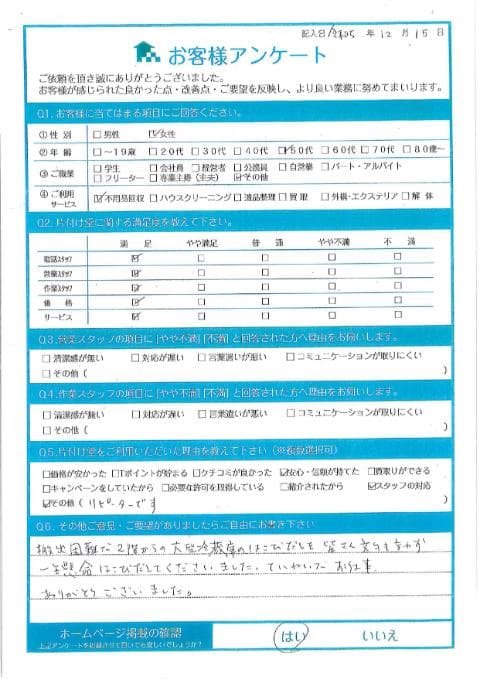 記入日 令和5 年 12 月 15 日
お客様アンケート
ご依頼を頂き誠にありがとうございました。
お客様が感じられた良かった点・改善点・ご要望を反映し、より良い業務に努めてまいります。
Q1. お客様に当てはまる項目にご回答ください。
①性 別 □男性 ☑女性
②年 齢 □～19歳 □20代 □30代 □40代 ☑50代 □60代 □70代 □80歳～
③ご職業 □学生 □会社員 □経営者 □公務員 □自営業 □パート・アルバイト
□フリーター □専業主婦(主夫) ☑その他
④ご利用サービス ☑不用品回収 □ハウスクリーニング □遺品整理 □買取 □外構・エクステリア □解体
Q2. 片付け堂に関する満足度を教えて下さい。
満足 やや満足 普通 やや不満 不満
電話スタッフ ☑ □ □ □ □
営業スタッフ ☑ □ □ □ □
作業スタッフ ☑ □ □ □ □
価格 ☑ □ □ □ □
サービス ☑ □ □ □ □
Q3. 営業スタッフの項目に[やや不満][不満]と回答された方へ理由をお伺いします。
□清潔感が無い □対応が遅い □言葉遣いが悪い □コミュニケーションが取りにくい
□その他( )
Q4. 作業スタッフの項目に[やや不満][不満]と回答された方へ理由をお伺いします。
□清潔感が無い □対応が遅い □言葉遣いが悪い □コミュニケーションが取りにくい
□その他( )
Q5. 片付け堂をご利用いただいた理由を教えて下さい(※複数選択可)
□価格が安かった □Tポイントが貯まる □クチコミが良かった ☑安心・信頼が持てた □買取りができる
□キャンペーンをしていたから □必要な許可を取得している □紹介されたから ☑スタッフの対応
☑その他(リピーターです )
Q6. その他ご意見・ご要望がありましたらご自由にお書き下さい
搬出困難な2階からの大型冷蔵庫のはこびだしを皆さん
一生懸命はこびだしてくださいました。ていねいなお仕事
ありがとうございました。
ホームページ掲載の確認 はい いいえ
上記アンケートを掲載させて頂いても宜しいでしょうか？